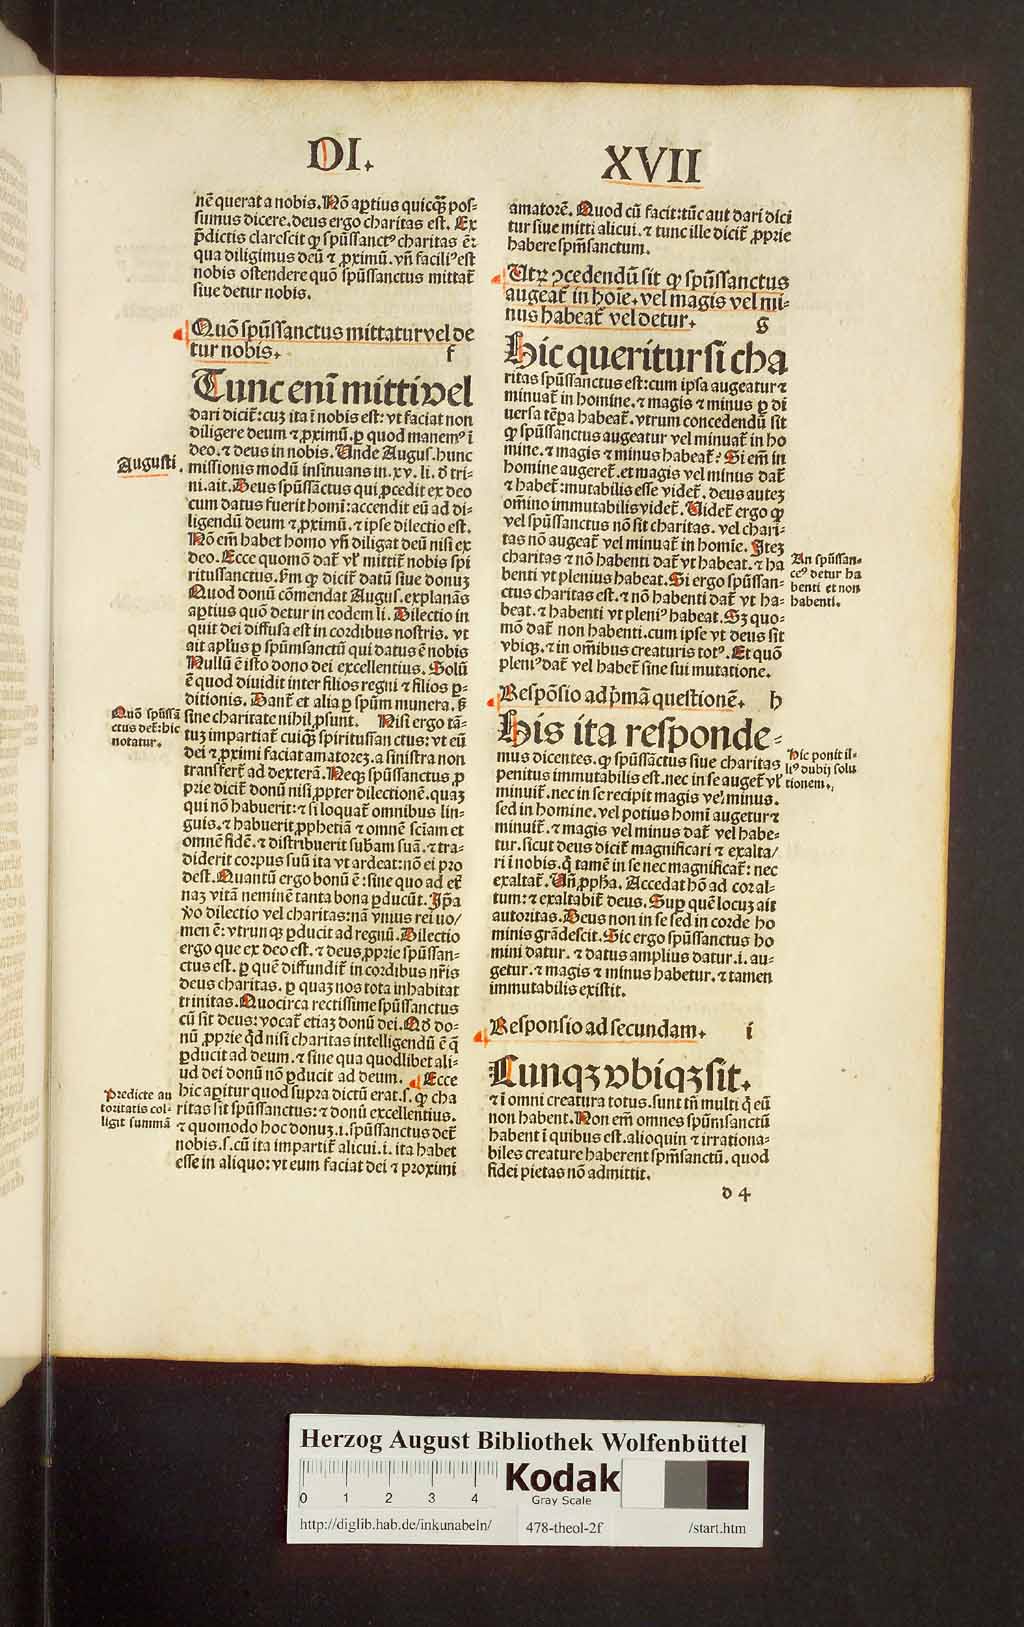 DI.
XVII
nē querat a nobis. Nō aptius quicq̄ꝫ pos-
sumus dicere. deus ergo charitas est. Ex
p̄dictis clarescit ꝙ spūssanctꝰ charitas ē:
qua diligimus deū ⁊ ꝓximū. vñ faciliꝰ est
nobis ostendere quō spūssanctus mittat̄
siue detur nobis.
Quō spūssanctus mittatur vel de
tur nobis. f
Tunc enī mitti vel
dari dicit̄: cuꝫ ita ī nobis est: vt faciat non
diligere deum ⁊ ꝓximū. ꝑ quod manemꝰ ī
deo. ⁊ deus in nobis. Unde Augus. hunc
Augusti.
missionis modū insinuans in. xv. li. ð tri-
ni. ait. Deus spūssāctus qui ꝓcedit ex deo
cum datus fuerit homī: accendit eū ad di-
ligendū deum ⁊ ꝓximū. ⁊ ipse dilectio est.
Nō em̄ habet homo vñ diligat deū nisi ex
deo. Ecce quomō dat̄ vl̄ mittit̄ nobis spi
ritussanctus. ẜm ꝙ dicit̄ datū siue donuꝫ
Quod donū cōmendat Augus. explanās
aptius quō detur in eodem li. Dilectio in
quit dei diffusa est in cordibus nostris. vt
ait aplus ꝑ spūmsanctū qui datus ē nobis
Nullū ē isto dono dei excellentius. Solū
ē quod diuidit inter filios regni ⁊ filios ꝑ-
ditionis. Dant̄ et alia ꝑ spūm munera. ẜꝫ
Quō spūssā
ctus det̄: hic
notatur.
sine charitate nihil ꝓsunt. Nisi ergo tā-
tuꝫ impartiat̄ cuiqꝫ spiritussanctus: vt eū
dei ⁊ ꝓximi faciat amatoreꝫ. a sinistra non
transfert̄ ad dexterā. Neqꝫ spūssanctus ꝓ
prie dicit̄ donū nisi ꝓpter dilectionē. quaꝫ
qui nō habuerit: ⁊ si loquat̄ omnibus lin-
guis. ⁊ habuerit ꝓphetiā ⁊ omnē sciam et
omnē fidē. ⁊ distribuerit subam suā. ⁊ tra-
diderit corpus suū ita vt ardeat: nō ei pro
dest. Quantū ergo bonū ē: sine quo ad et̄
naꝫ vitā neminē tanta bona ꝑducūt. Ipa
vo dilectio vel charitas: nā vnius rei no/
men ē: vtrunqꝫ ꝑducit ad regnū. Dilectio
ergo que ex deo est. ⁊ deus ꝓprie spūssan-
ctus est. ꝑ quē diffundit̄ in cordibus nr̄is
deus charitas. ꝑ quaꝫ nos tota inhabitat
trinitas. Quocirca rectissime spūssanctus
cū sit deus: vocat̄ etiaꝫ donū dei. Qð do-
nū ꝓprie q̇d nisi charitas intelligendū ē q̄
ꝑducit ad deum. ⁊ sine qua quodlibet ali-
ud dei donū nō ꝑducit ad deum. Ecce
Predicte au
toritatis col-
ligit summā
hic apitur quod supra dictū erat. s. ꝙ cha
ritas sit spūssanctus: ⁊ donū excellentius.
⁊ quomodo hoc donuꝫ. i. spūssanctus det̄
nobis. s. cū ita impartit̄ alicui. i. ita habet
esse in aliquo: vt eum faciat dei ⁊ proximi
amatorē. Quod cū facit: tūc aut dari dici
tur siue mitti alicui. ⁊ tunc ille dicit̄ ꝓprie
habere spm̄sanctum.
Utꝝ ↄcedendū sit ꝙ spūssanctus
augeat̄ in hoīe. vel magis vel mi-
nus habeat̄ vel detur. g
Hic queritur si cha
ritas spūssanctus est: cum ipsa augeatur ⁊
minuat̄ in homine. ⁊ magis ⁊ minus ꝑ di
uersa tēpa habeat̄. vtrum concedendū sit
ꝙ spūssanctus augeatur vel minuat̄ in ho
mine. ⁊ magis ⁊ minus habeat̄? Si em̄ in
homine augeret̄. et magis vel minus dat̄
⁊ habet̄: mutabilis esse videt̄. deus auteꝫ
om̄ino immutabilis videt̄. Videt̄ ergo ꝙ
vel spūssanctus nō sit charitas. vel chari-
tas nō augeat̄ vel minuat̄ in homīe. Iteꝫ
charitas ⁊ nō habenti dat̄ vt habeat. ⁊ ha
benti vt plenius habeat. Si ergo spūssan-
ctus charitas est. ⁊ nō habenti dat̄ vt ha-
beat. ⁊ habenti vt pleniꝰ habeat. Sꝫ quo-
mō dat̄ non habenti. cum ipse vt deus sit
vbiqꝫ. ⁊ in om̄ibus creaturis totꝰ. Et quō
pleniꝰ dat̄ vel habet̄ sine sui mutatione.
An spūssan-
ctꝰ detur ha
benti et non
habenti.
Respōsio ad p̄mā questionē. h
His ita responde-
mus dicentes. ꝙ spūssāctus siue charitas
penitus immutabilis est. nec in se auget̄ vl̄
minuit̄. nec in se recipit magis vel minus.
sed in homine. vel potius homī augetur ⁊
minuit̄. ⁊ magis vel minus dat̄ vel habe-
tur. sicut deus dicit̄ magnificari ⁊ exalta/
ri ī nobis. q̇ tamē in se nec magnificat̄: nec
exaltat̄. Uñ ꝓpha. Accedat hō ad cor al-
tum: ⁊ exaltabit̄ deus. Sup quē locuꝫ ait
autoritas. Deus non in se sed in corde ho
minis grādescit. Sic ergo spūssanctus ho
mini datur. ⁊ datus amplius datur. i. au-
getur. ⁊ magis ⁊ minus habetur. ⁊ tamen
immutabilis existit.
Hic ponit il-
liꝰ dubij solu
tionem.
Responsio ad secundam. i
Cunqꝫ vbiqꝫ sit.
⁊ ī omni creatura totus. sunt tn̄ multi q̇ eū
non habent. Non em̄ omnes spūmsanctū
habent ī quibus est. alioquin ⁊ irrationa-
biles creature haberent spm̄sanctū. quod
fidei pietas nō admittit.
d 4
Herzog August Bibliothek Wolfenbüttel
0 1 2 3 4
Kodak
Gray Scale
http://diglib.hab.de/inkunabeln/
478-theol-2f
/start.htm